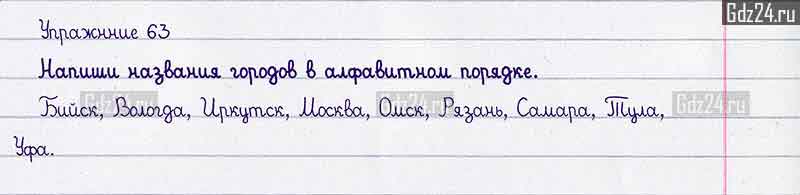 Gdz24.ru
Упражнние 63
Напиши названия городов в алфавитном порядке.
Бийск, Вологда, Иркутск, Москва, Омск, Рязань, Самара, Тула,
Gdz24.ru
Уфа.